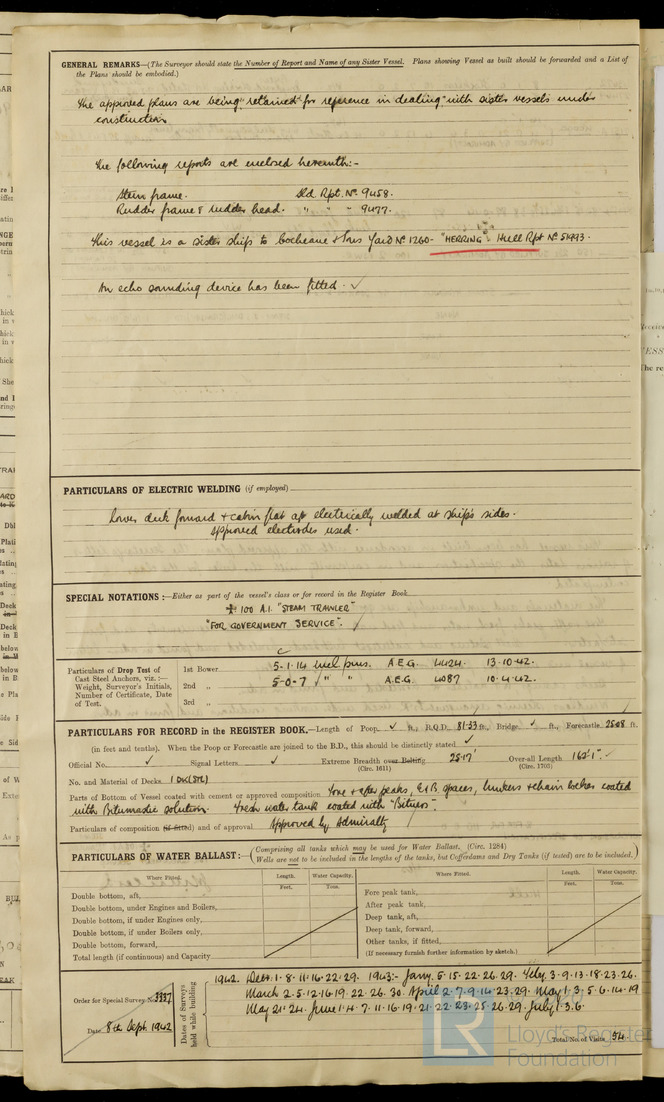 GENERAL REMARKS—(The Surveyor should state the Number of Report and Name of any Sister Vessel. Plans showing Vessel as built should be forwarded and a List of
the Plans should be embodied.)
The approved plans are being retained for reference in dealing with sister vessels under
construction
The following reports are enclosed herewith:-
Stern frame. Sld Rpt. No. 9458.
Rudder frame & rudder head. " " " 9477.
This vessel is a sister ship to Cochrane & Sons Yard No 1260 - "HERRING" Hull Rpt No 51993.
An echo sounding device has been fitted. ✓
PARTICULARS OF ELECTRIC WELDING (if employed)
Lower deck forward & cabin flat aft electrically welded at ship's sides.
Approved electrodes used.
SPECIAL NOTATIONS:—Either as part of the vessel's class or for record in the Register Book
✠ 100 A.1. "STEAM TRAWLER"
"FOR GOVERNMENT SERVICE". ✓
Particulars of Drop Test of
Cast Steel Anchors, viz.:—
Weight, Surveyor's Initials,
Number of Certificate, Date
of Test.
1st Bower 5-1-14 incl pins. A.E.G. 4424. 13-10-42.
2nd „ 5-0-7 " " A.E.G. 4087 10-4-42.
3rd „
PARTICULARS FOR RECORD in the REGISTER BOOK.—Length of Poop ✓ ft., R.Q.D. 81.33 ft., Bridge ✓ ft., Forecastle 25.08 ft.
(in feet and tenths). When the Poop or Forecastle are joined to the B.D., this should be distinctly stated ✓
Official No. ✓ Signal Letters ✓ Extreme Breadth over Belting 25.17' Over-all Length 162.1'
(Circ. 1611) (Circ. 1703)
No. and Material of Decks 1 DK (STL)
Parts of Bottom of Vessel coated with cement or approved composition Fore & after peaks, E&B spaces, bunkers & chain locker coated
with Bitumastic solution. Fresh water tank coated with "Bituros".
Particulars of composition (if fitted) and of approval Approved by Admiralty
PARTICULARS OF WATER BALLAST:— (Comprising all tanks which may be used for Water Ballast. (Circ. 1284)
Wells are not to be included in the lengths of the tanks, but Cofferdams and Dry Tanks (if tested) are to be included.)
Where Fitted. Length. Water Capacity. Where Fitted. Length. Water Capacity.
Feet. Tons. Feet. Tons.
Double bottom, aft, Fore peak tank,
Double bottom, under Engines and Boilers, After peak tank,
Double bottom, if under Engines only, Deep tank, aft,
Double bottom, if under Boilers only, Deep tank, forward,
Double bottom, forward, Other tanks, if fitted,
Total length (if continuous) and Capacity (If necessary furnish further information by sketch.)
Order for Special Survey No. 3337
Date 8th Sept 1942
Dates of Surveys
held while building
1942. Decr. 1. 8. 11. 16. 22. 29. 1943:- Jany. 5. 15. 22. 26. 29. Feby. 3. 9. 13. 18. 23. 26.
March 2. 5. 12. 16. 19. 22. 26. 30. April 2. 7. 9. 14. 23. 29. May 1. 3. 5. 6. 14. 19
May 21. 24. June 1. 4. 7. 11. 16. 19. 21. 22. 23. 25. 26. 29. July 1. 3. 6.
Total No. of Visits 54
Lloyd's Register
Foundation